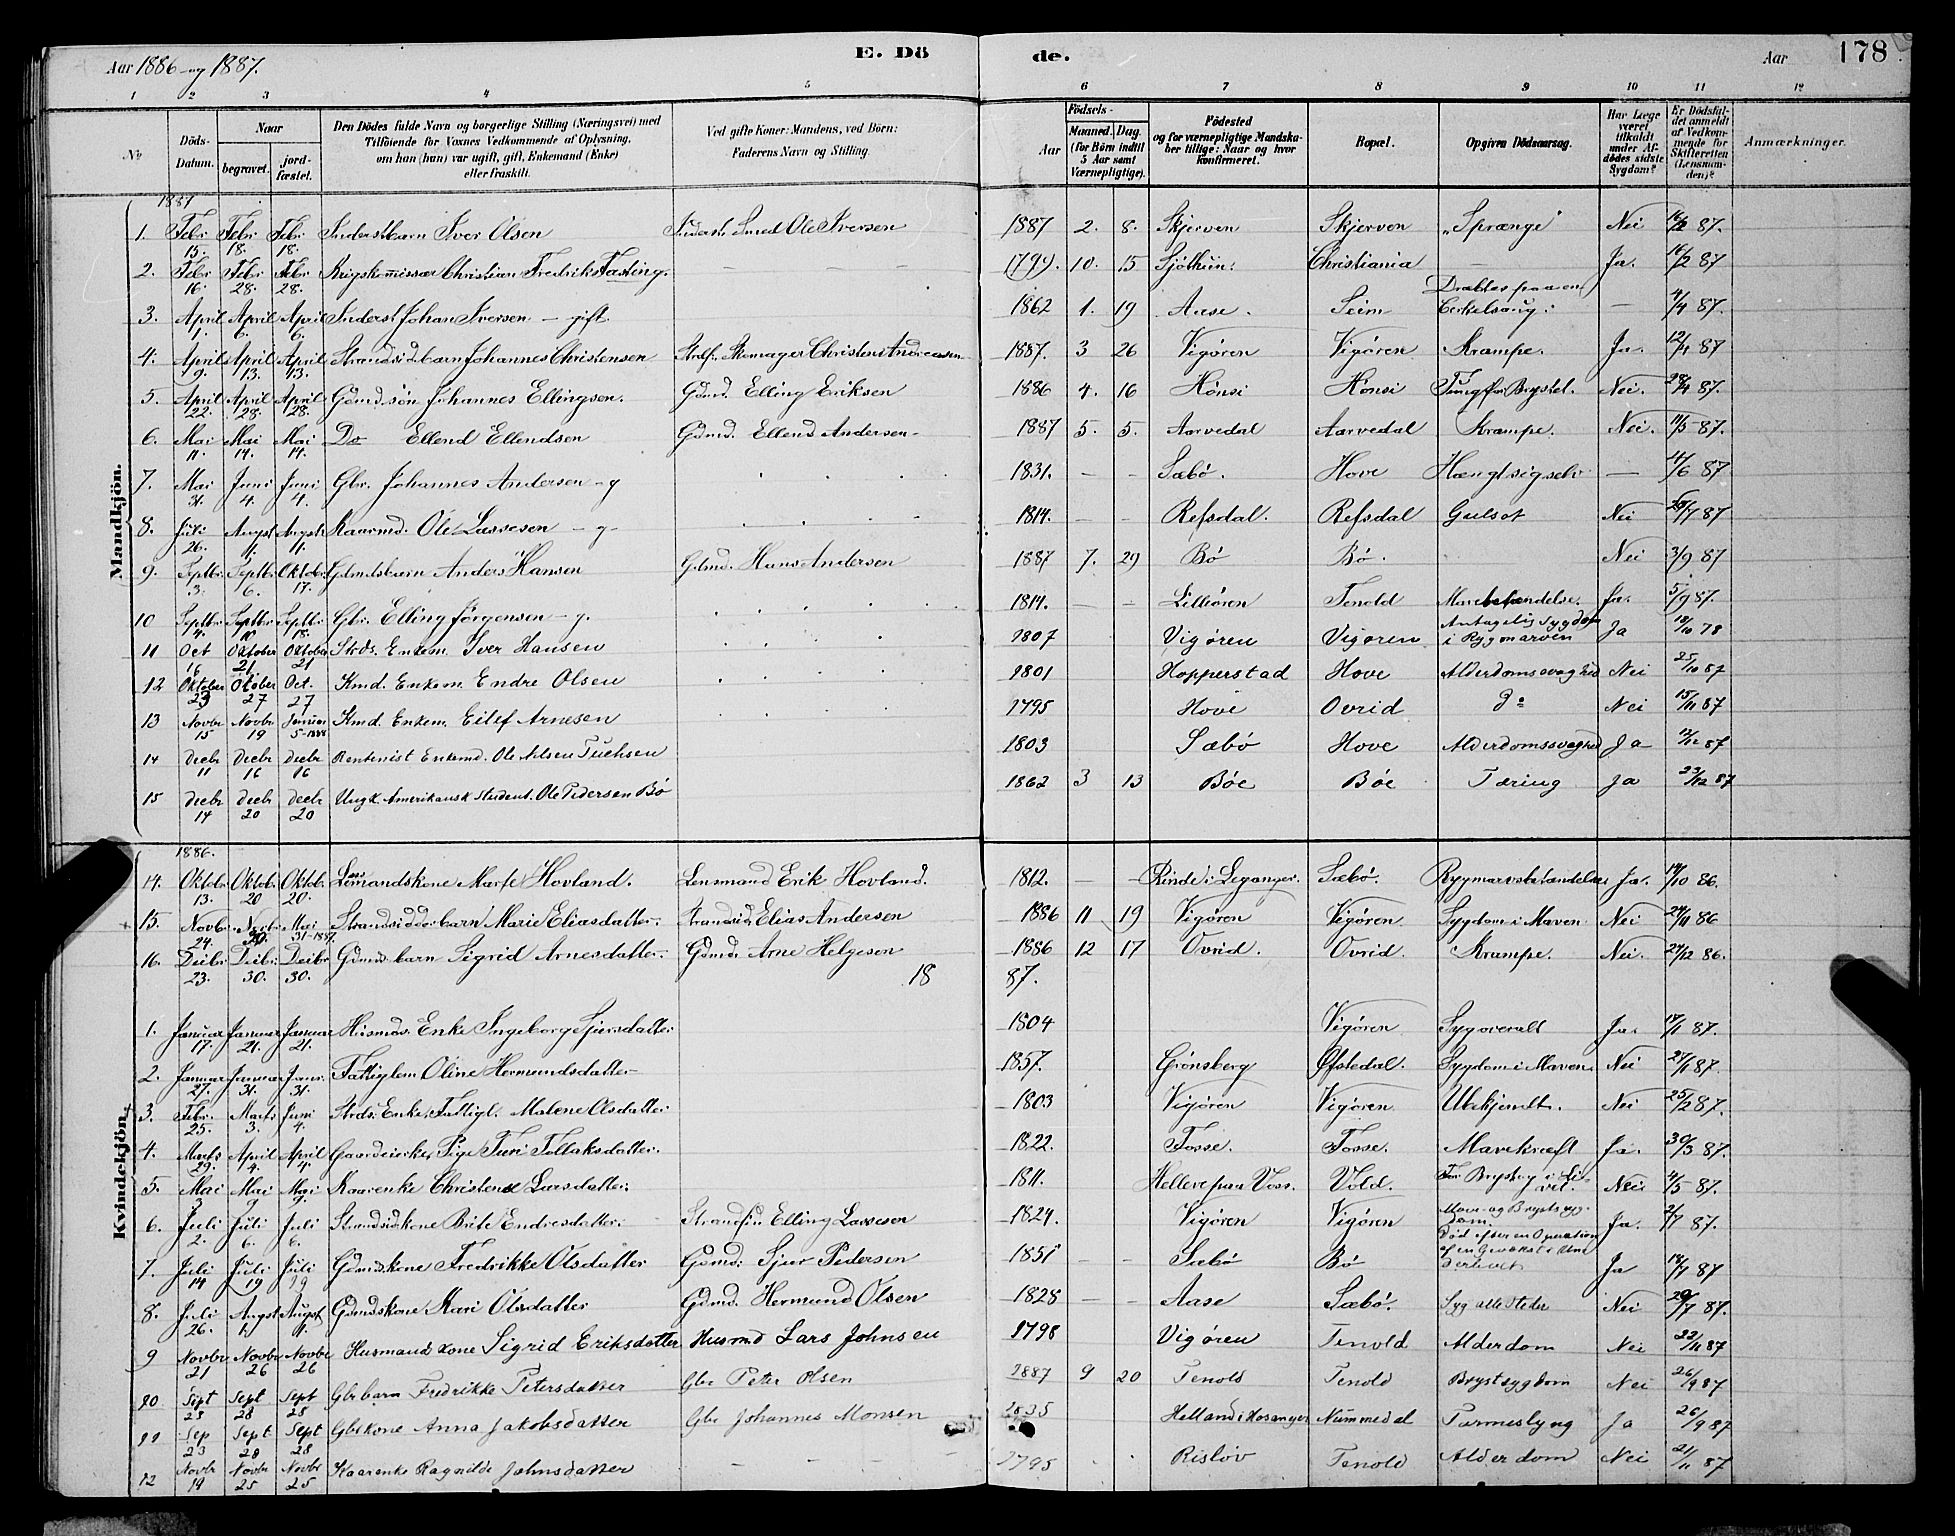 Aar 1886 og 1887. E. Dö de. Aar 178
1 2 3 4 5 6 7 8 9 10 11 12
No Döds-Datum. Naar begravet. jordfæstet. Den Dödes fulde Navn og borgerlige Stilling (Næringsvei) med Tilföiende for Voxnes Vedkommende af Oplysning, om han (hun) var ugift, gift, Enkemand (Enke) eller fraskilt. Ved gifte Koner: Mandens, ved Börn: Faderens Navn og Stilling. Födsels- Aar Maaned. Dag. (for Börn indtil 5 Aar samt Værnepligtige). Födested og for værnepligtige Mandskaber tillige: Naar og hvor konfirmeret. Bopæl. Opgiven Dödsaarsag. Har Læge været tilkaldt under Afdödes sidste Sygdom? Er Dödsfaldet anmeldt af Vedkommende for Skifteretten (Lensmanden)? Anmærkninger.
Mandkjön.
1887
1. Febr 15. Febr 18. Febr 18. Inderstbarn Iver Olsen Inderst. Smed Ole Iversen 1887 2. 8. Skjerven Skjerven "Sprænge" Nei 16/2 87.
2. Febr 16. Febr 28. Febr 28. Krigskomissær Christian Fredrik Fasting. — — (1799). 10. 15 Sjøthun. Christiania — Ja. 16/2 87
3. April 1. April 6. April 6. Inderst Johan Iversen — gift. 1862 1. 19 Aase. Seim Dræbtes paa en Cirkelsaug. — 4/4 87.
4. April 9. April 13. April 13. Strandsidbarn Johannes Christensen Skomager Christen Andreassen 1887. 3 26 Vigøren Vigøren Krampe. Ja. 12/4 87
5. April 22. April 28. April 28. Gdmd søn Johannes Ellingsen. Gdmd. Elling Eriksen 1886 4. 16 Hønsi Hønsi Tung for Brystet. Nei. 28/4 87.
6. Mai 11. Mai 14. Mai 14. Do Ellend Ellendsen Gdmd. Ellend Andersen 1887 5. 5. Aarvedal Aarvedal Krampe. Nei. 11/5 87.
7. Mai 31. Juni 4. Juni 4. Gbr. Johannes Andersen — g 1831. — — Sæbø. Hove Hængt sig selv — 4/6 87
8. Juli 26. Augst 1. Augst 1. Kaarmd. Ole Lassesen — g — 1814. — — Refsdal. Refsdal Gulsot Nei 29/7 87
9. Septbr. 3. Septbr. 6. Oktobr. 17. Gdmdsbarn Anders Hansen Gdmd. Hans Andersen 1887 7. 29 Bø Bø. Nei 3/9 87
10 Septbr 4. Septbr 10 Septbr 18. Gbr. Elling Jørgensen — g. 1814. — — Lilliøren Tenold Mavebetændelse. Ja. 5/9 87.
11 Oct 16 Oktober 21. Oktober 21 Strds. Enkem. Iver Hansen 1807 Vigøren Vigøren Antagelig Sygdom i Rygmarven Ja 18/10 78
12 Oktober 23 Otober 27 Oct. 27 Kmd. Enkem. Endre Olsen 1801 Hopperstad Hove Alderdomssvaghed Nei 25/10 87
13 Novbr 15 Novbr 19 Januar 5-1888 Kmd. Enkem. Eilef Arnesen 1795 Hove Ovrid Do Nei 15/11 87
14 Decbr 11 Decbr 16 Decbr 16 Rentenist Enkemd. Ole Nilsen Tuchsen 1803 Sæbø Hove Alderdomssvaghed Ja 12/12 87
15 Decbr 14 Decbr 20 Decbr 20 Ungk. Amerikansk student. Ole Pedersen Bø 1862 3 13 Bøe Bøe Tæring Ja 23/12 87
Kvindekjön.
1886.
14. Oktob. 13. Oktob. 20 Oktob. 20. Lensmandskone Marte Hovland. Lensmand Erik Hovland. 1812. — — Rinde i Leganger. Sæbø. Rygmarvsbetændelse Ja. 14/10 86.
15. Novb. 24. Novb. 30. Mai 31-1887. Strandsidderbarn Marie Eliasdatter. Strandsid Elias Andersen 1886 11 19 Vigøren Vigøren. Sygdom i Maven Nei 24/11 86
16. Decbr. 23. Decbr. 30. Decbr 30. Gdmdsbarn Sigrid Arnesdatter. Gdmd. Arne Helgesen 1886 12 17 Ovrid. Ovrid. Krampe. Nei. 27/12 86.
18 87.
1. Januar 17. Januar 21. Januar 21. Husmds. Enke Ingeborg Sjursdatter 1804 Vigøren Syg overalt Ja. 17/1 87.
2. Januar 27. Januar 31. Janr. 31. Fattiglem Oline Hermundsdatter 1857. Grønsberg Ofstedal. Sygdom i Maven. Nei 27/1 87.
3. Febr. 25. Marts 3. Juni 4. Strds. Enke, Fattigl. Malene Olsdatter 1803 Vigøren Vigøren Ubekjendt. Nei 25/2 87.
4. Marts 29. April 4. April 4. Pige Turi Tollaksdatter. 1822. Fosse. Fosse. Mavekræft Ja. 30/3 87.
5. Mai 3 Mai 9 Mai 9. Kaarenke Larsdatter. 1811. Helleve paa Voss. Vold. Nei 4/5 87.
6. Juli 2. Juli 6. Juli 6. Strandsidkone Brite Endresdatter. Elling Lassesen 1824. Vigøren Vigøren Mave og Brystsygdom. Ja. 2/7 87.
7. Juli 14 Juli 19 Juli 19 Gdmdskone Fredrikke Olsdatter Gdmd. Sjur Pedersen 1851 — — Sæbø Bø Død efter en Operation af en Gevækst i Underlivet Ja 18/7 87
8. Juli 26. Augst 1. Augst 1. Gdmdskone Kari Olsdatter Gdmd. Hermund Olsen 1828 — — Aase Sæbø. Syg alle Steder Nei 29/7 87.
9 Novbr 21 Novbr 26 Novbr 26 Husmandskone Sigrid Eriksdatter Husmd Lars Johnsen 1798 Vigøren Tenold Alderdom Nei 22/11 87
10 Sept 23 Sept 28 Sept 28 Gbr barn Fredrikke Petersdatter Gbr Peter Olsen 1887 9 20 Tenold Tenold Brystsygdom Nei 26/9 87
11 Sep 23 Sept 28 Sept 28 Gbrkone Anna Jakobsdatter Gbr Johannes Monsen 1835 Helland i Hosanger Nummedal Ja 26/9 87
12 Novbr 19 Novbr 25 Novbr 25 Kaarenke Ragnilde Johnsdatter — — — 1795 Risløv Tenold Alderdom Nei 21/11 87